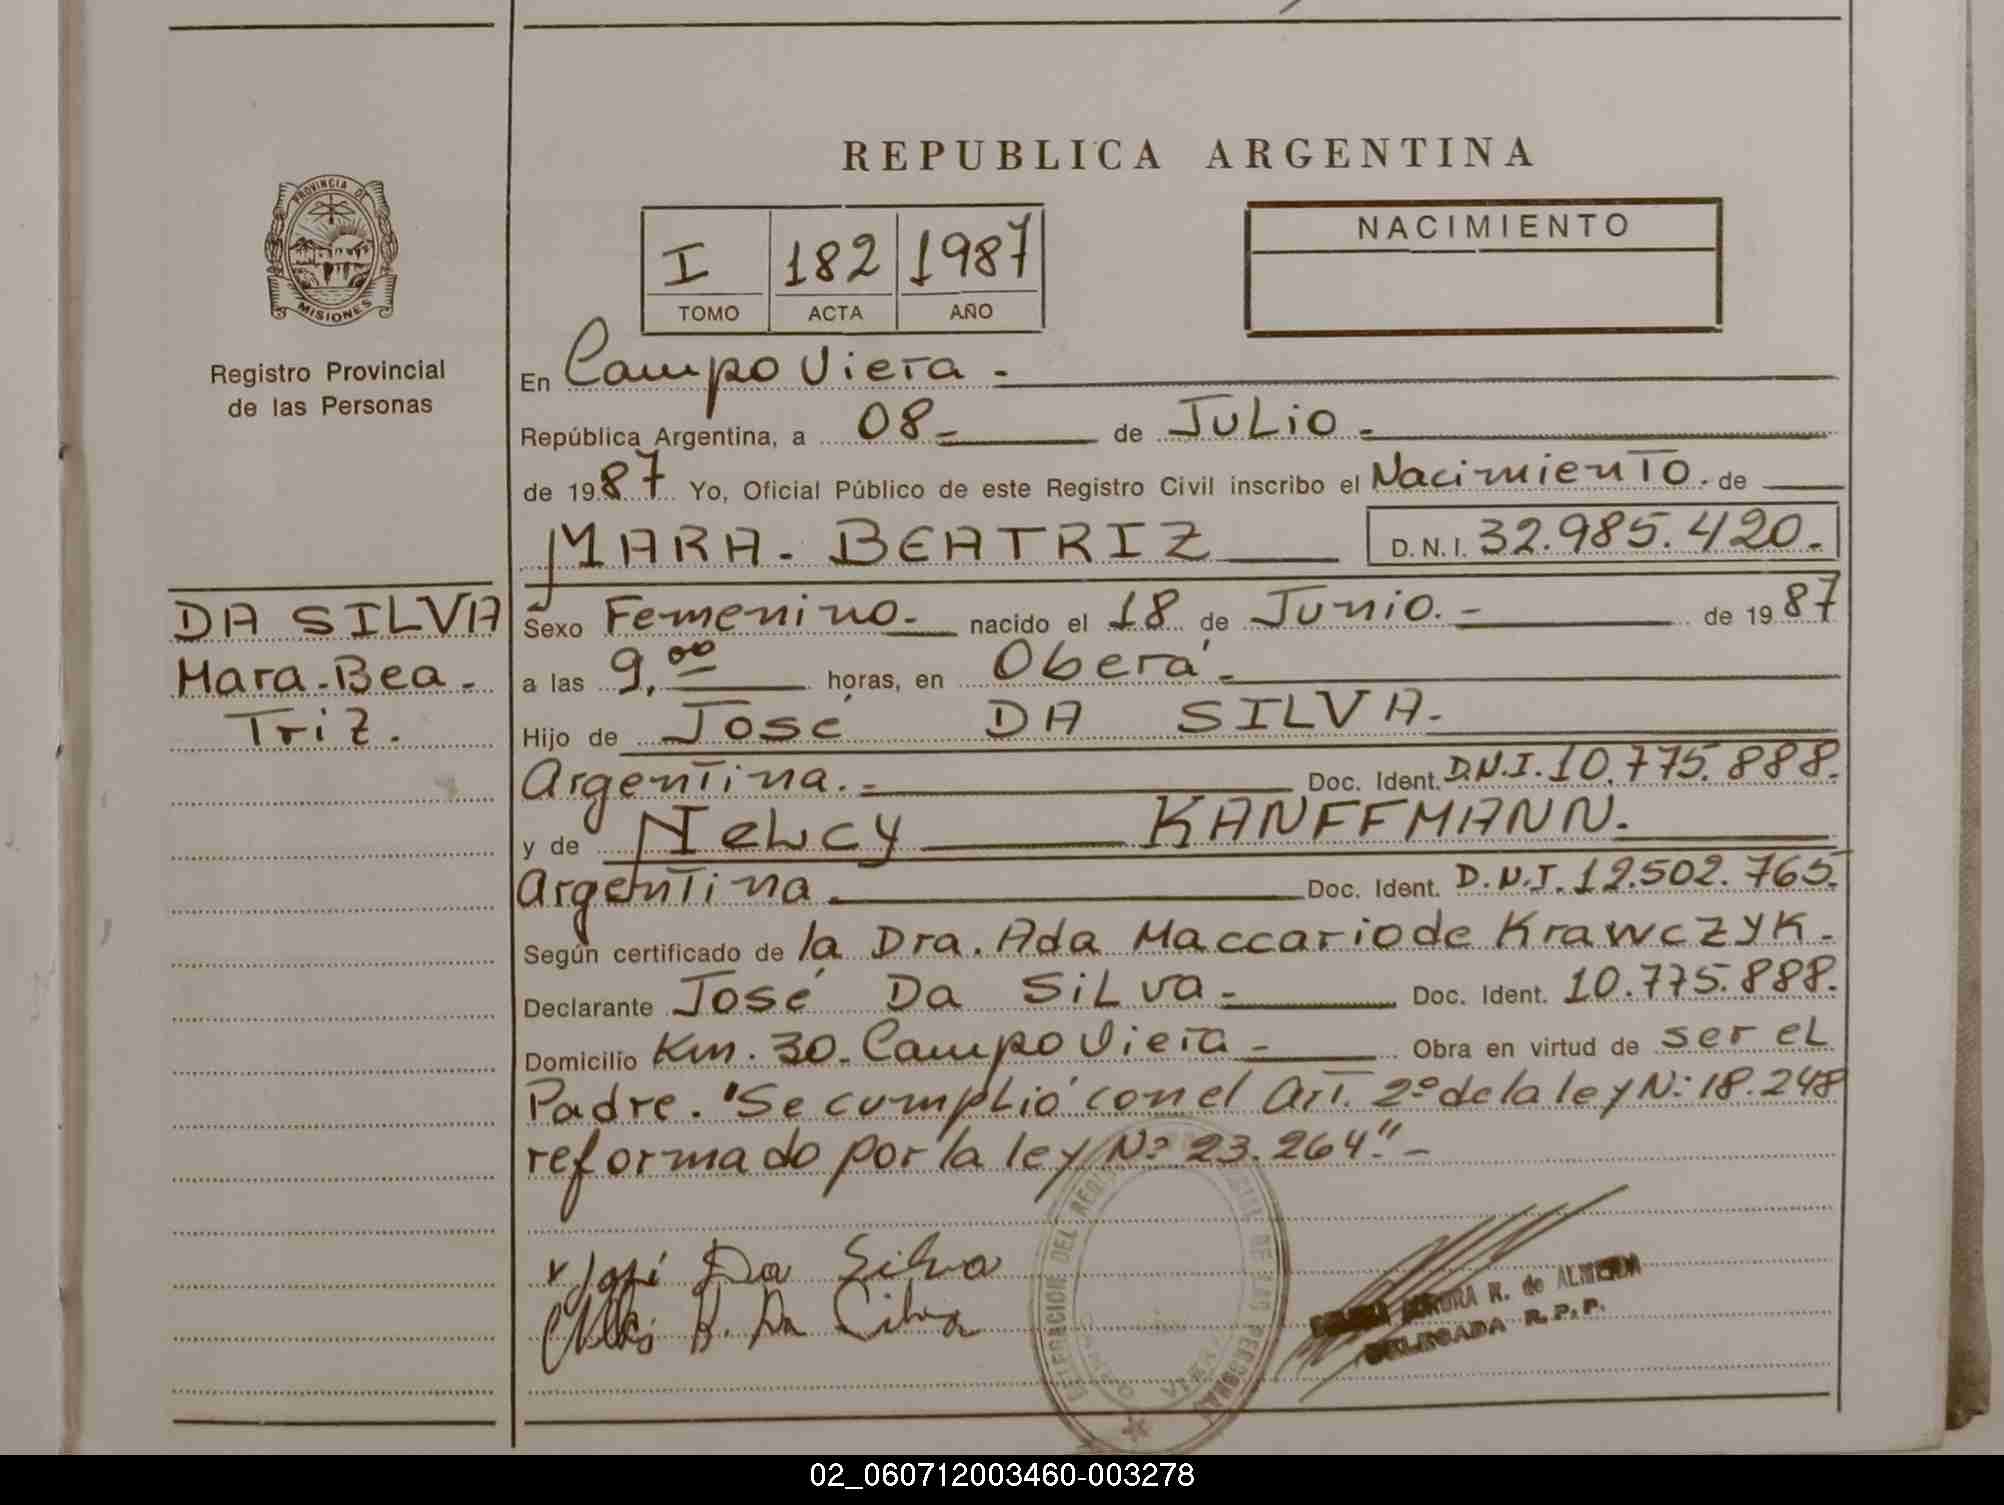 REPUBLICA ARGENTINA
PROVINCIA DE
MISIONES
Registro Provincial
de las Personas
I 182 1987
TOMO ACTA AÑO
NACIMIENTO
En Campo Viera -
República Argentina, a 08- de Julio -
de 1987 Yo, Oficial Público de este Registro Civil inscribo el Nacimiento. de
MARA - BEATRIZ D.N.I. 32.985.420.
DA SILVA
Mara - Bea -
Triz.
Sexo Femenino. nacido el 18 de Junio. - de 1987
a las 9,00 horas, en Oberá -
Hijo de José DA SILVA.
Argentina. - Doc. Ident. D.N.I. 10.775.888.
y de Nelcy KANFFMANN.
Argentina Doc. Ident. D.N.I. 12.502.765.
Según certificado de la Dra. Ada Maccario de Krawczyk.
Declarante José Da Silva - Doc. Ident. 10.775.888.
Domicilio Km. 30. Campo Viera - Obra en virtud de ser el
Padre. "Se cumplió con el Art. 2º de la ley N: 18.248
reformado por la ley Nº 23.264" -
José Da Silva
K. Da Silva
R. de ALMEIDA
DELEGADA R.P.P.
DEL
DE LAS PERSONAS
CAMPO VIERA
02_060712003460-003278